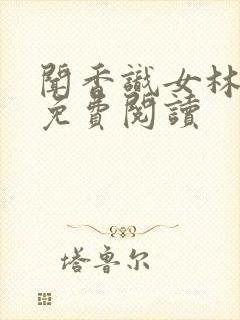 聞香識女林
免費閱讀
塔魯尔